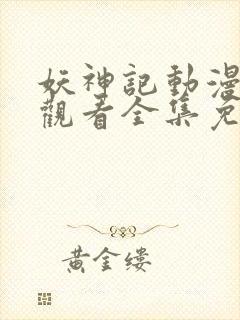 妖神記動漫
觀看全集免
黃金縷